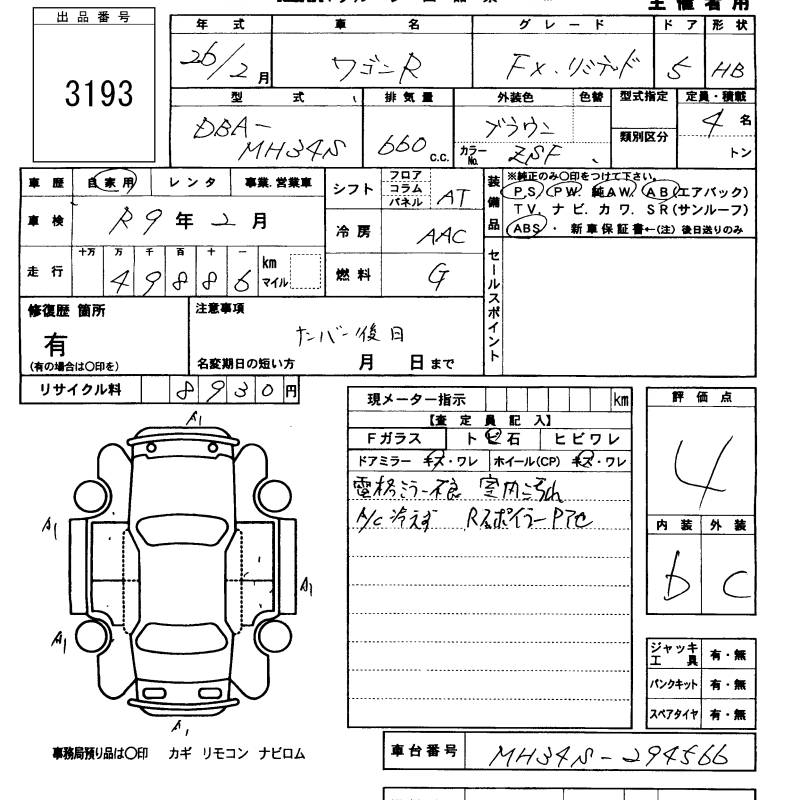 主催者用
出品番号
3193
年式 車名 グレード ドア 形状
26/2月 ワゴンR FX.リミテッド 5 HB
型式 排気量 外装色 色替 型式指定 定員・積載
DBA-MH34S 660 c.c. ブラウン カラーNo. ZSF 類別区分 4名 トン
車歴 自家用 レンタ 事業.営業車
車検 R9年2月
走行 十万 万 千 百 十 一 km マイル
49886
シフト フロア コラム パネル AT
冷房 AAC
燃料 G
装備品
※純正のみ〇印をつけて下さい。
P.S P.W. 純A.W. A.B(エアバック)
T.V. ナビ. カワ. S.R(サンルーフ)
ABS ・ 新車保証書←(注) 後日送りのみ
セールスポイント
修復歴 箇所
有
(有の場合は〇印を)
注意事項
ナンバー後日
名変期日の短い方 月 日まで
リサイクル料 8930円
現メーター指示 km
【査定員記入】
Fガラス トビ石 ヒビワレ
ドアミラー キズ・ワレ ホイール(CP) キズ・ワレ
電格ミラー不良 室内汚れ
A/C冷えず Rスポイラーアセ
評価点
4
内装 外装
b C
A1
A1
A1
A1
A1
ジャッキ工具 有・無
パンクキット 有・無
スペアタイヤ 有・無
事務局預り品は〇印 カギ リモコン ナビロム
車台番号 MH34S-294566